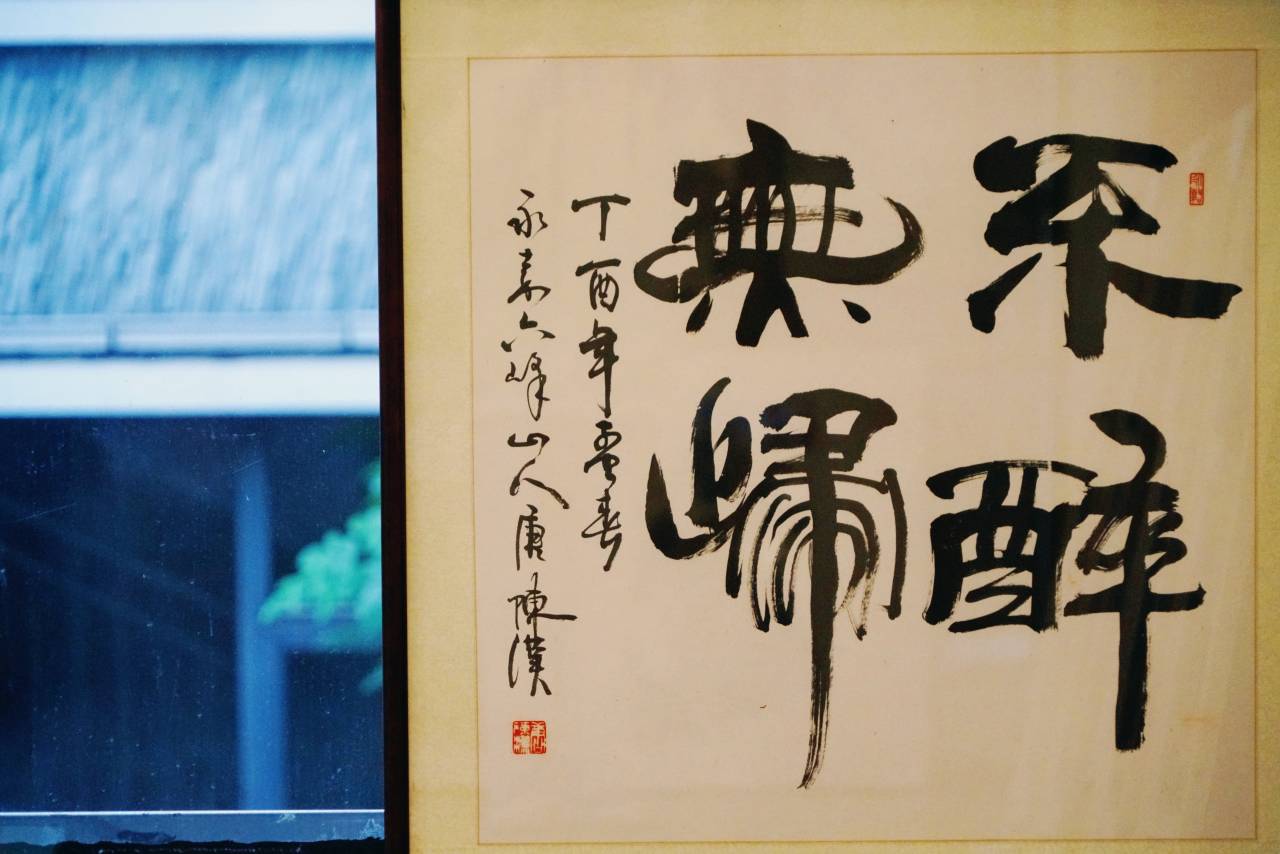 不醉
無歸
丁酉年孟春
永嘉六峰山人唐陳漢